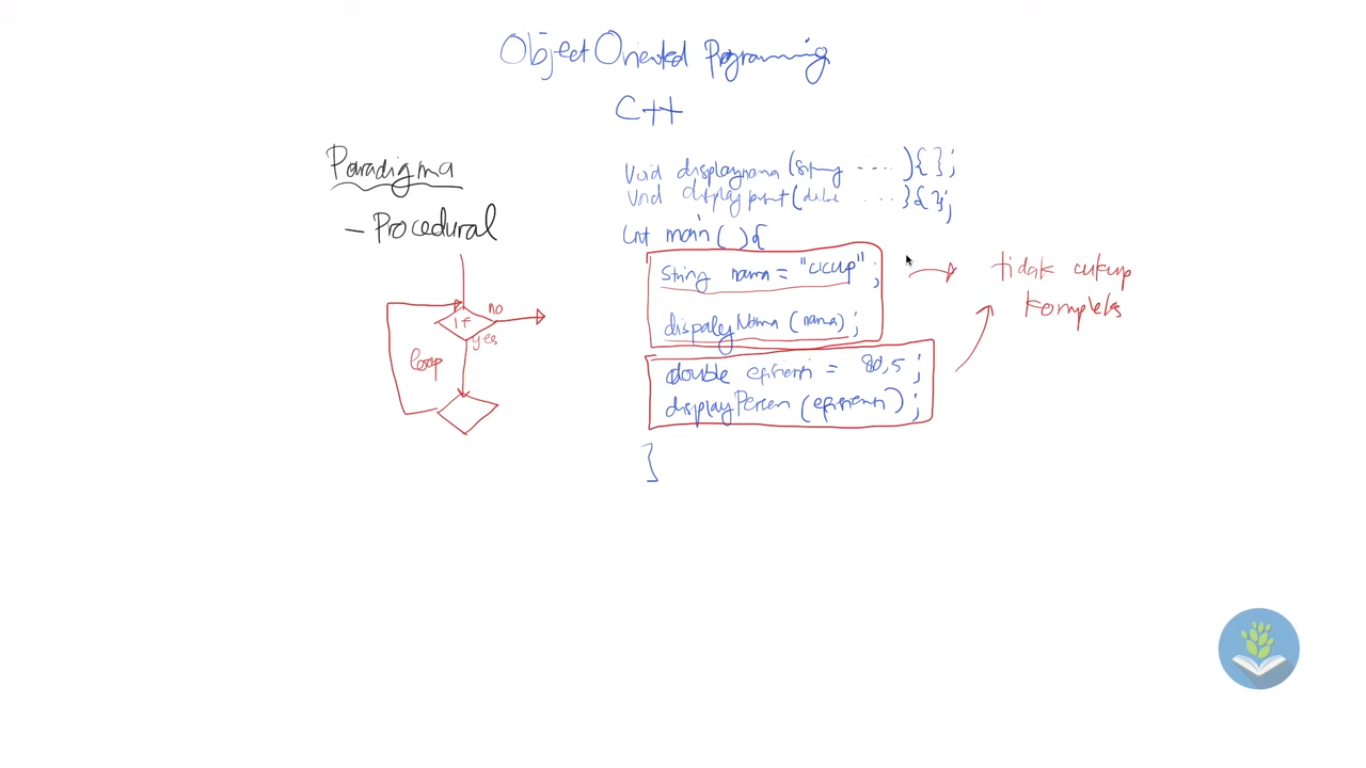 Object Oriented Programming
C++
Paradigma
- Procedural
if
no
yes
loop
void displaynama (string ....){};
void display ( ....){};
int main( ){
string nama = "ucup" ;
dispaleyNama (nama) ;
double = 80,5 ;
displayPercen ( ) ;
}
tidak cukup
kompleks